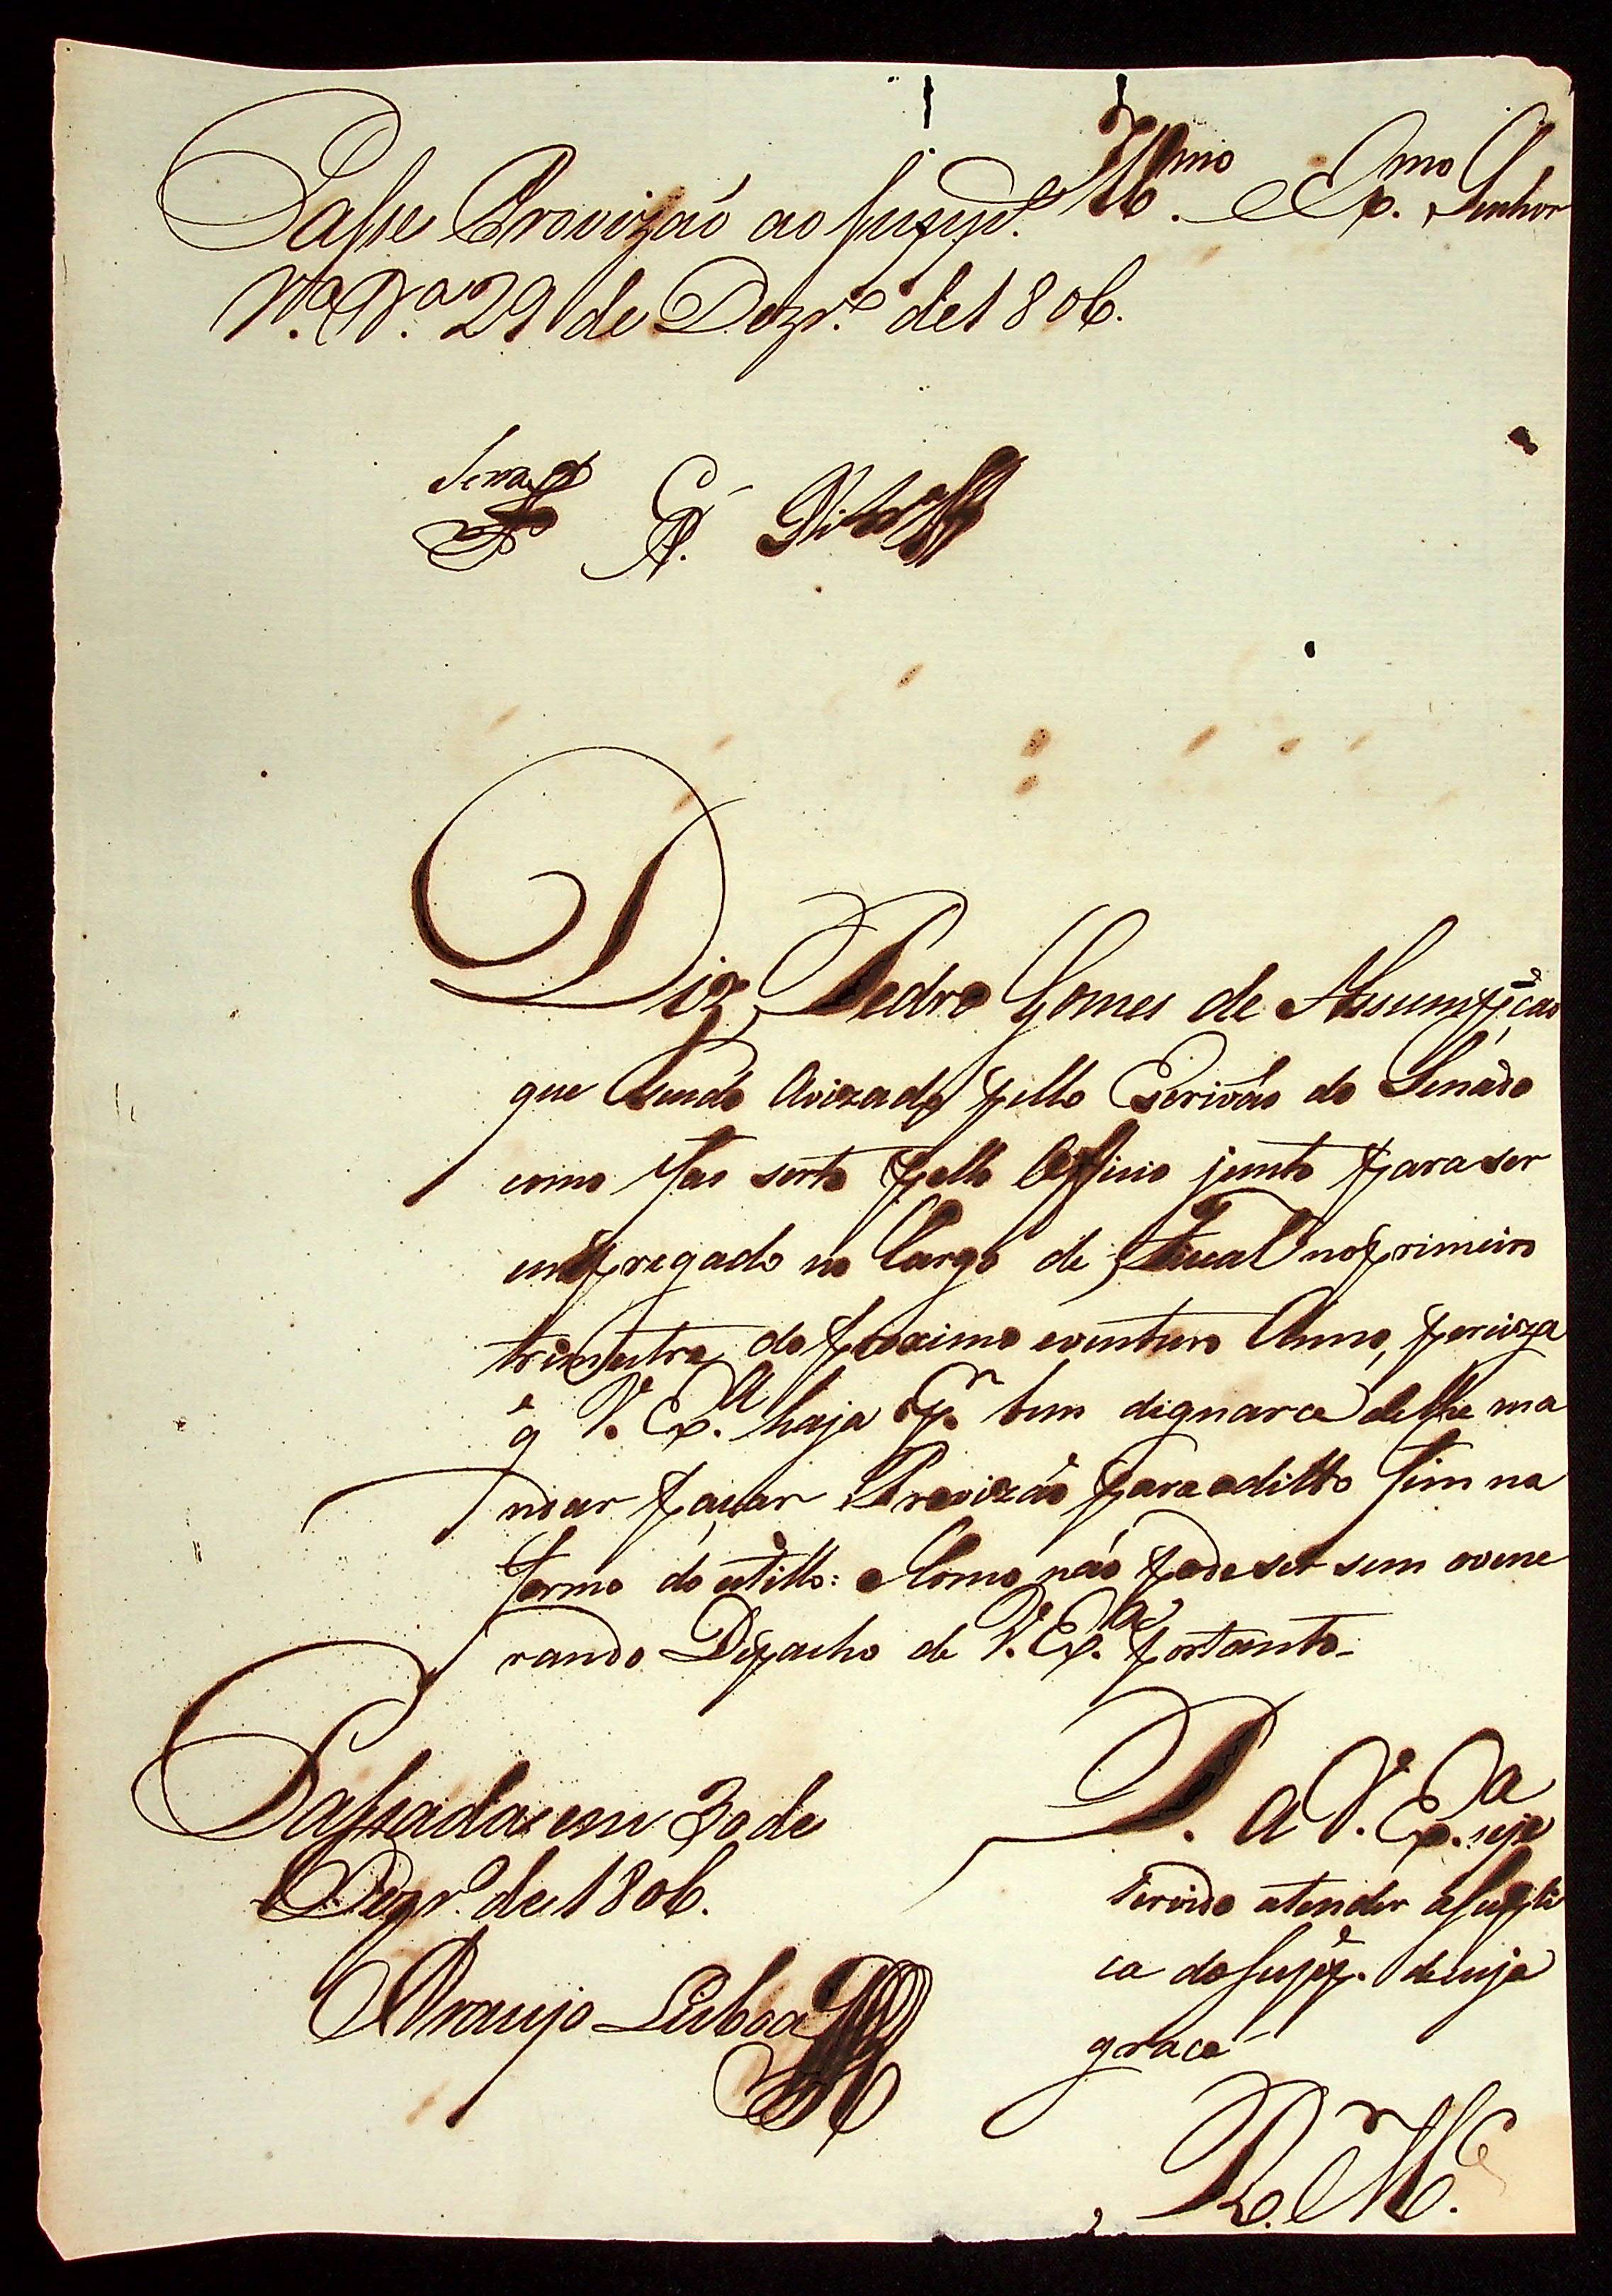 Passe Provizaó ao supp.e Ill.mo e Ex.mo Senhor
V.a R.a 29 de Dezr.o de 1806.
Diz Pedro Gomes de Assumpçaõ
que sendo avizado pello Escrivaõ do Senado
como faz serto pello officio junto para ser
empregado no Cargo de Fiscal no primeiro
trimestre do proximo eventuro Anno, perciza
q̃ V. Ex.a haja p.r bem dignarce de lhe ma
ndar paçar Provizaõ para o ditto fim na
forma do estillo: e Como naõ pode ser sem o vene
rando Dispacho de V. Ex.a portanto
P. a V. Ex.a seja
servido atender a supli
ca do supp.e de cuja
graca
R. M.ce
Passada em 30 de
Dezr.o de 1806.
Araujo Lisboa